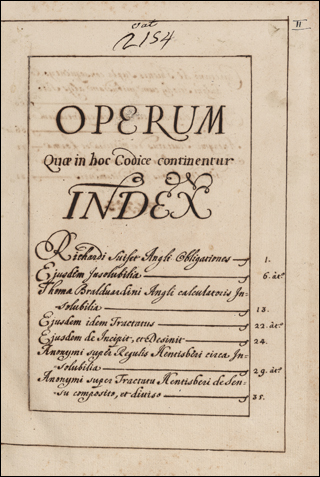 II
vat
2154
OPERUM
Quæ in hoc Codice continentur
INDEX
Richardi Suiset Angli Obligationes f 1.
Ejusdem Insolubilia f 6. at.º
Thomæ Bralduardini Angli calculatoris In-
solubilia f 13.
Ejusdem idem Tractatus f 22. at.º
Ejusdem de Incipit, et Desinit f 24.
Anonymi super Regulis Hentisbéri circa In-
solubilia f 29. at.º
Anonymi super Tractatu Hentisberi de Sen-
su composito, et diviso f 35.